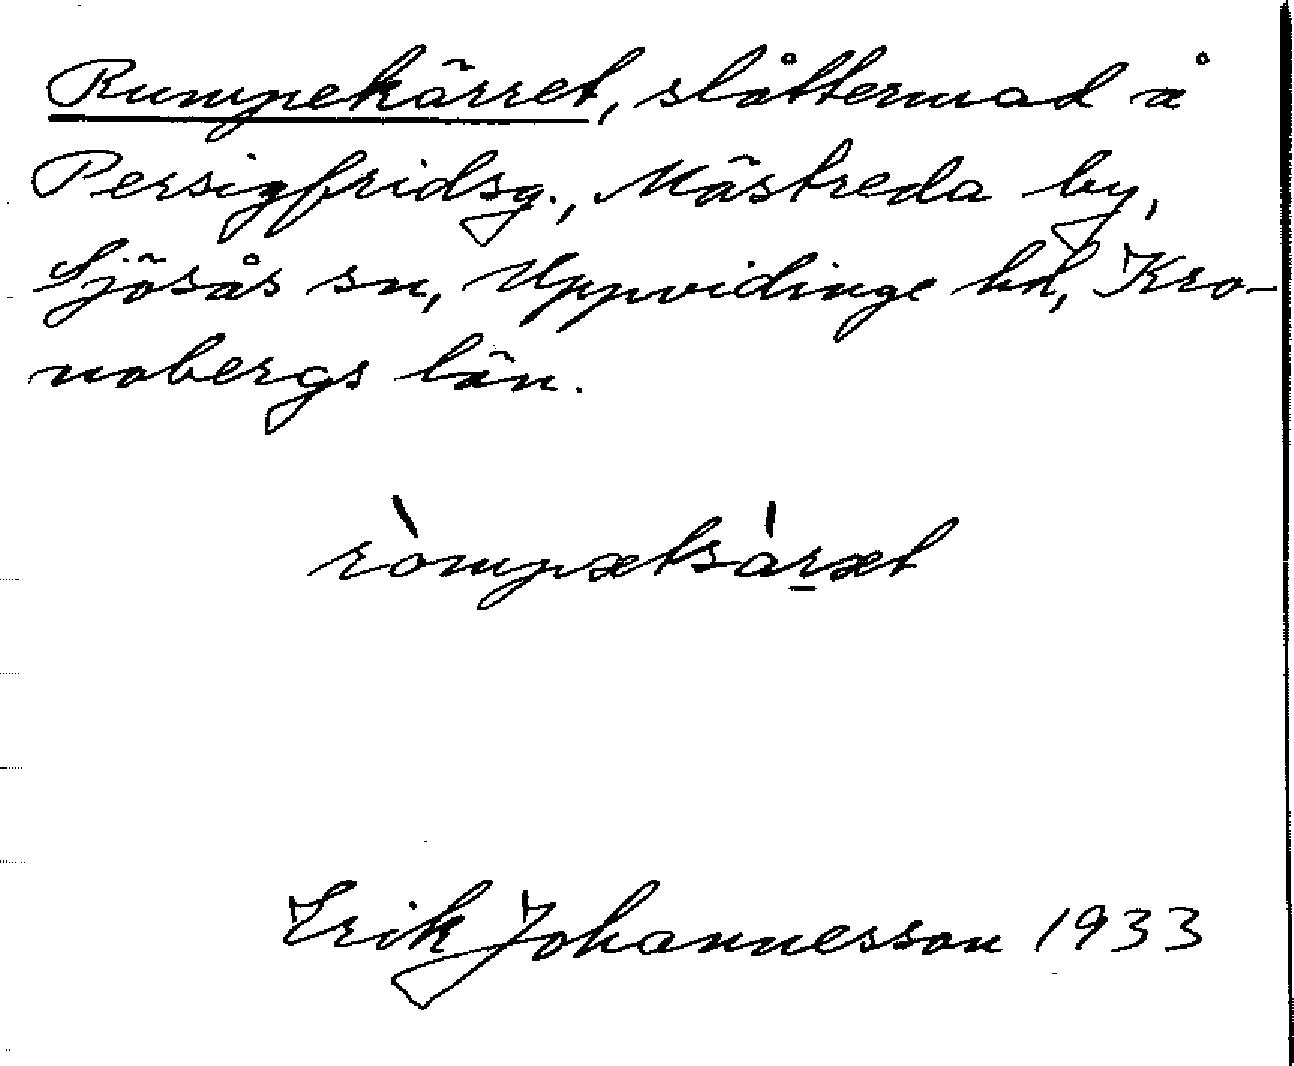 Rumpekärret, slåttermad å
Persigfridsg., Mästreda by,
Sjösås sn, Uppvidinge hd, Kro-
nobergs län.
ròmpætsáræt
Erik Johannesson 1933